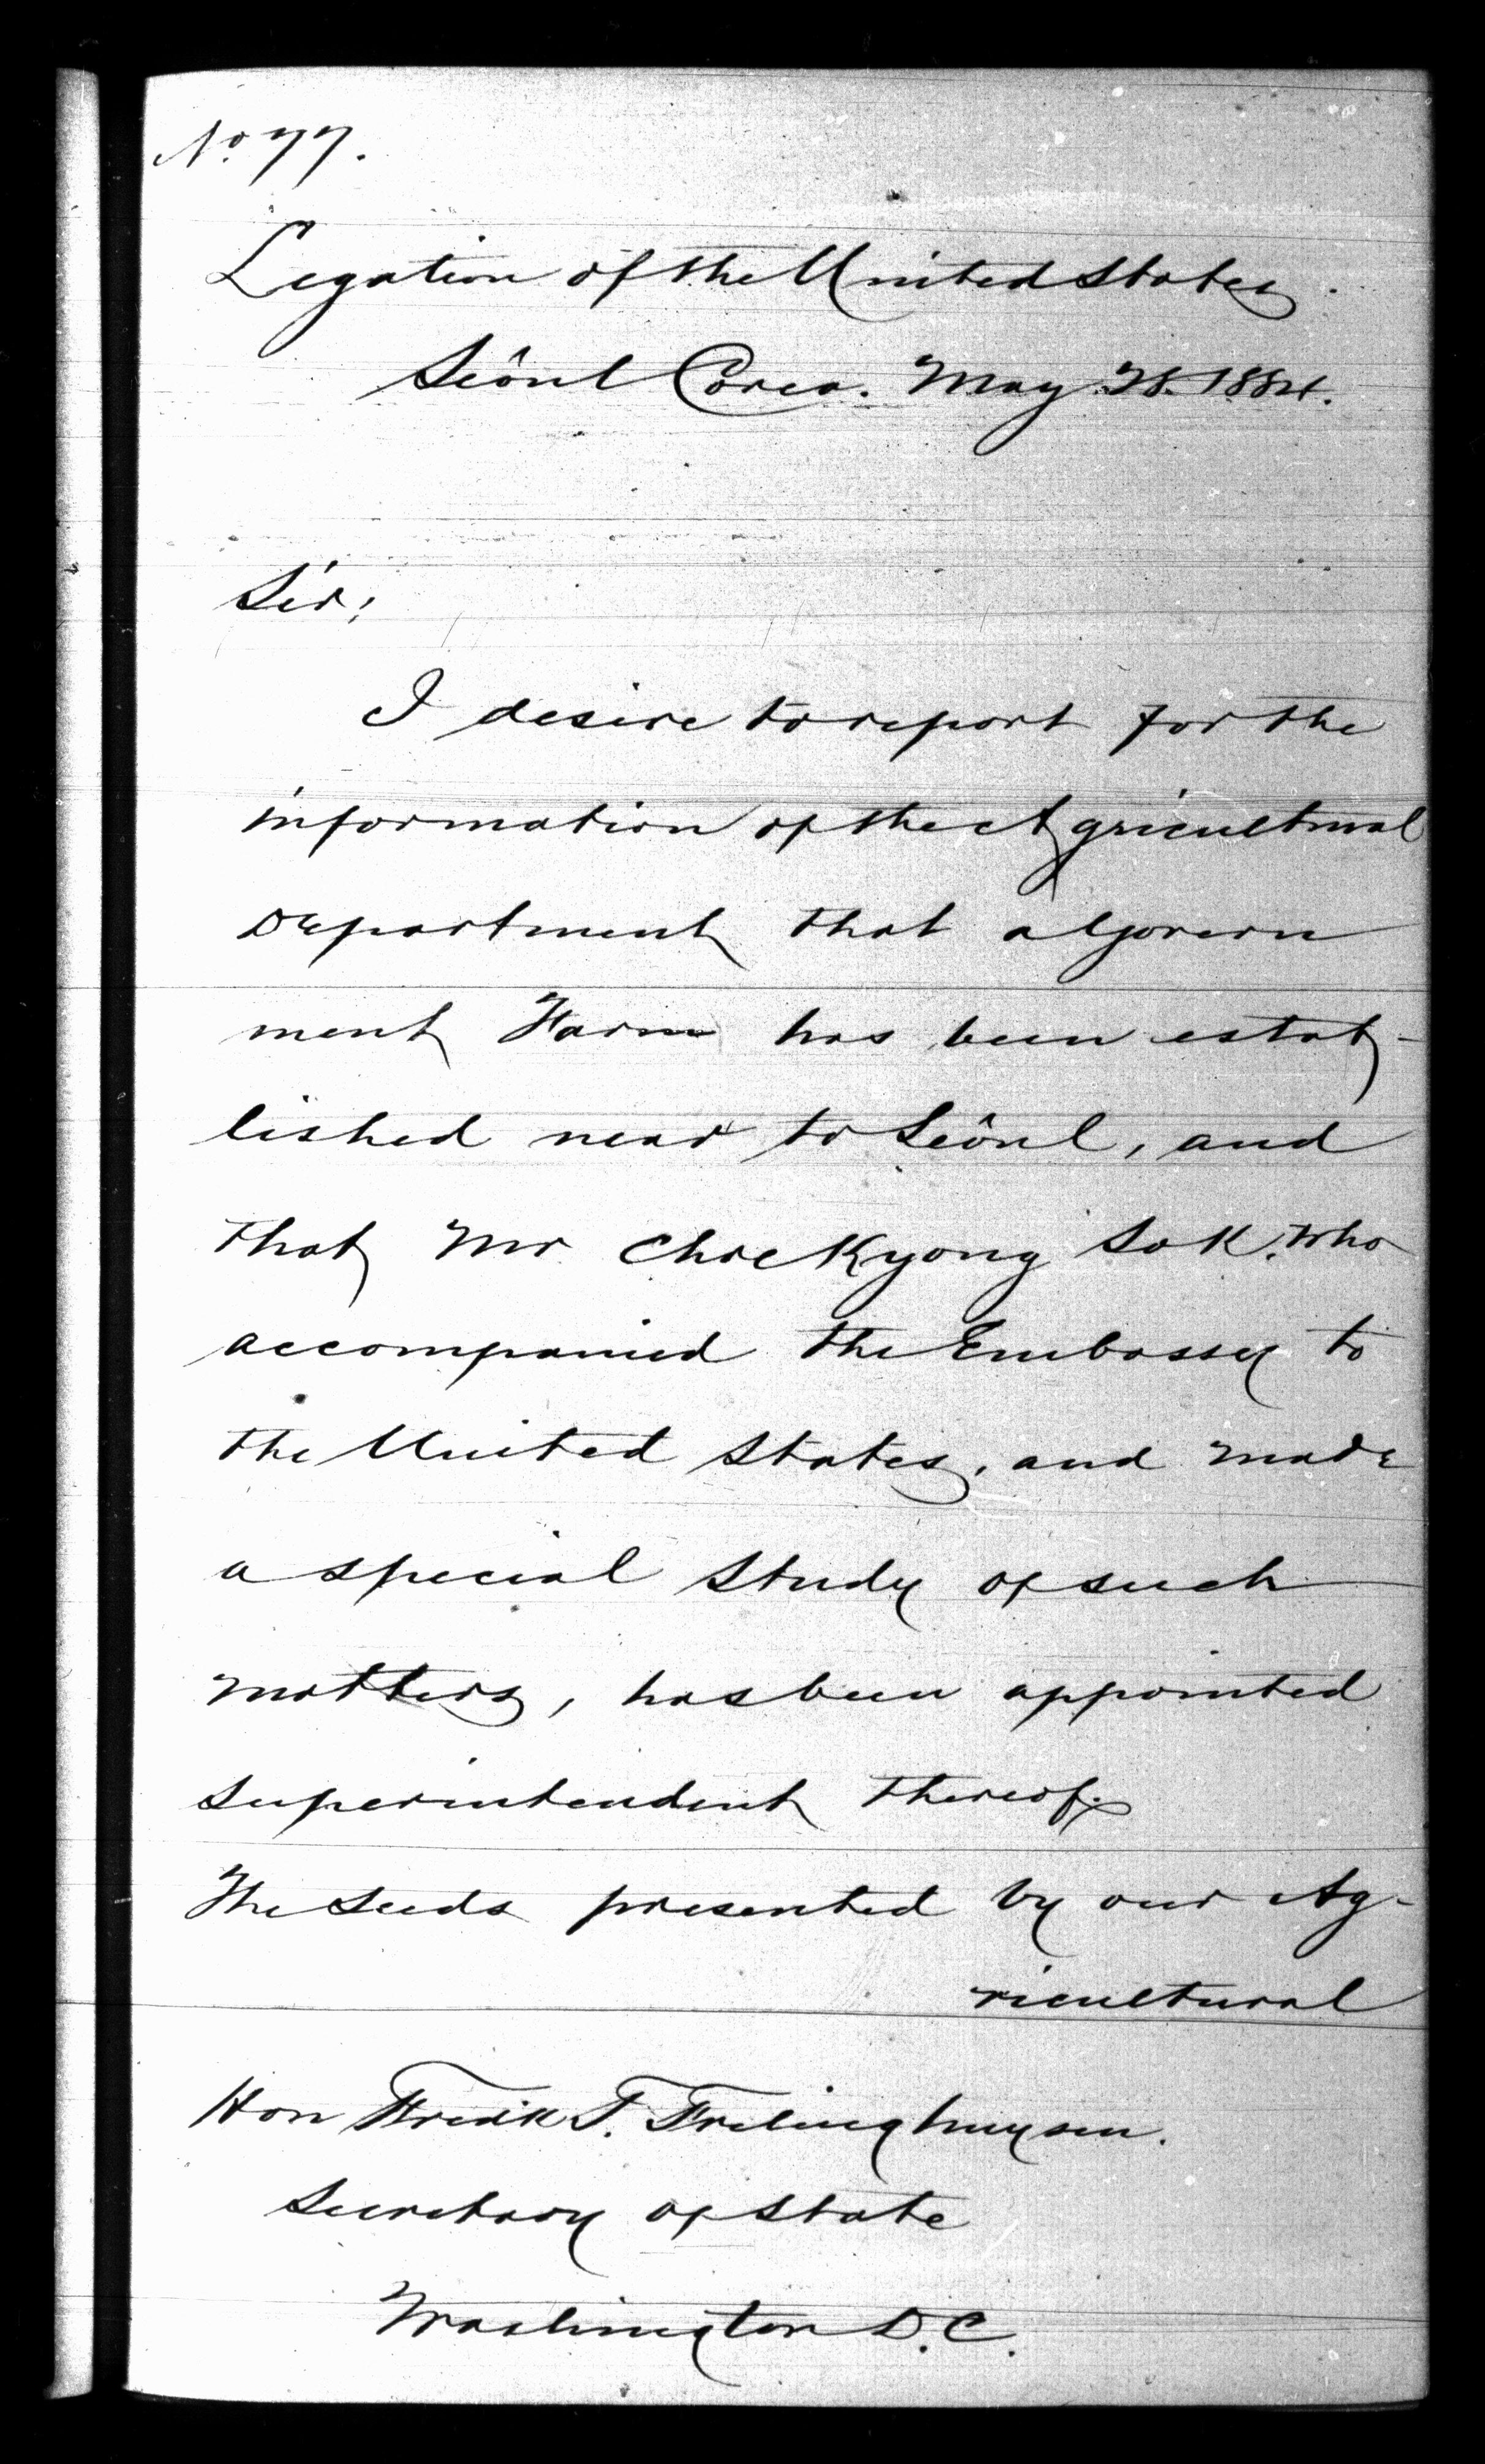 No. 77.
Legation of the United States.
Seôul Corea. May 28. 1884.
Sir;
I desire to report for the
information of the Agricultural
Department that a Govern
ment Farm has been estab-
lished near to Seôul, and
that Mr Choe Kyong Sok. who
accompanied the Embassy to
the United States, and made
a special study of such
matters, has been appointed
superintendent thereof.
The seeds presented by our Ag-
ricultural
Hon Fredk T. Frelinghuysen.
Secretary of State
Washington D.C.